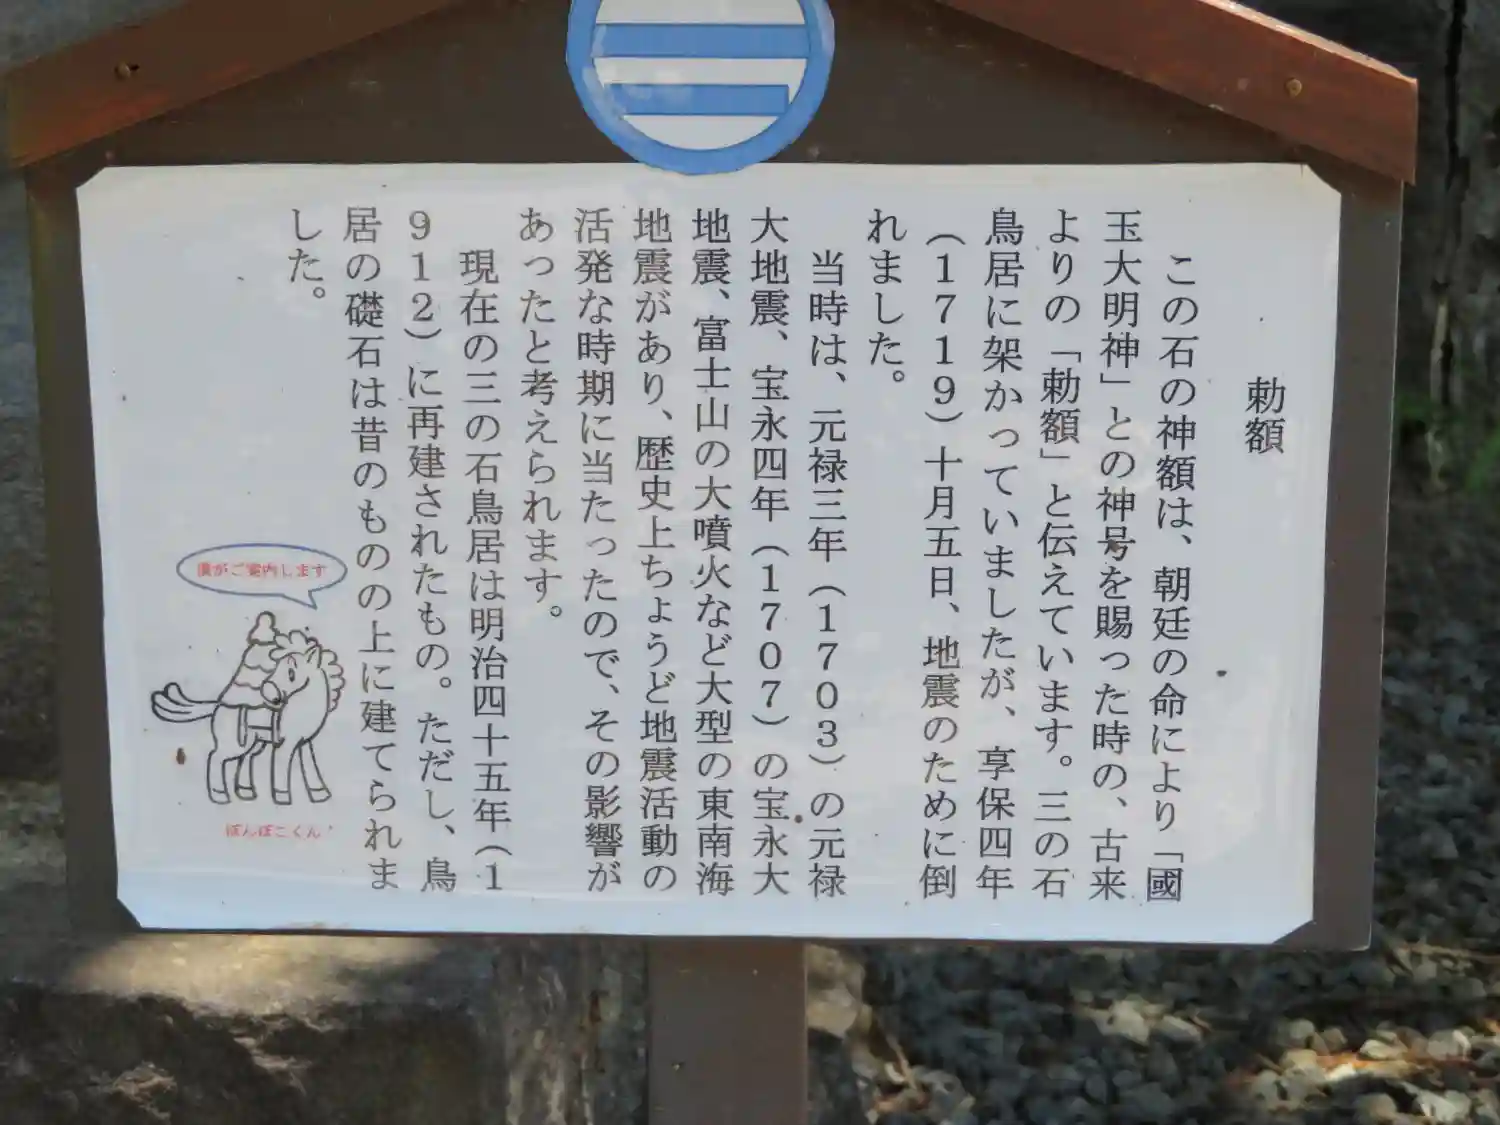 勅額
この石の神額は、朝廷の命により「國
玉大明神」との神号を賜った時の、古来
よりの「勅額」と伝えています。三の石
鳥居に架かっていましたが、享保四年
（１７１９）十月五日、地震のために倒
れました。
当時は、元禄三年（１７０３）の元禄
大地震、宝永四年（１７０７）の宝永大
地震、富士山の大噴火など大型の東南海
地震があり、歴史上ちょうど地震活動の
活発な時期に当たったので、その影響が
あったと考えられます。
現在の三の石鳥居は明治四十五年（１
９１２）に再建されたもの。ただし、鳥
居の礎石は昔のものの上に建てられま
した。
僕がご案内します
ぽんぽこくん